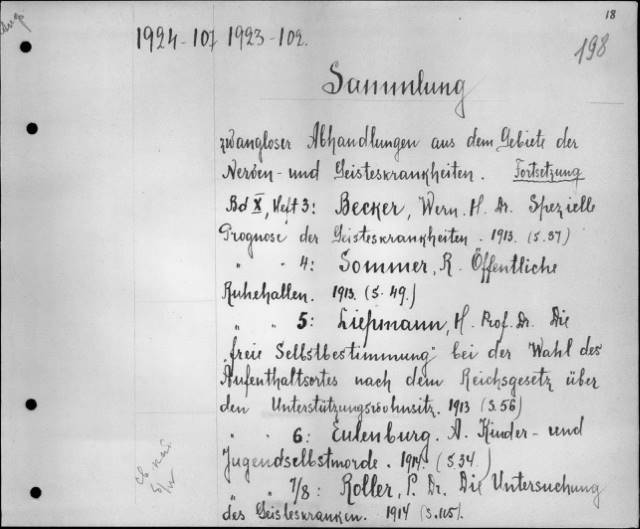 18
198
1924-107 1923-102.
Sammlung
zwangloser Abhandlungen aus dem Gebiete der
Nerven- und Geisteskrankheiten. Fortsetzung
Bd X, Heft 3: Becker, Wern. H. Dr. Spezielle
Prognose der Geisteskrankheiten. 1913. (S. 37)
" " 4: Sommer, R. Öffentliche
Ruhehallen. 1913. (S. 49.)
" " 5: Liepmann, H. Prof. Dr. Die
„freie Selbstbestimmung" bei der Wahl des
Aufenthaltsortes nach dem Reichsgesetz über
den Unterstützungswohnsitz. 1913 (S. 56)
" " 6: Eulenburg. A. Kinder- und
Jugendselbstmorde. 1914. (S. 34.)
" " 7/8: Roller, P. Dr. Die Untersuchung
des Geisteskranken. 1914 (S. 115).